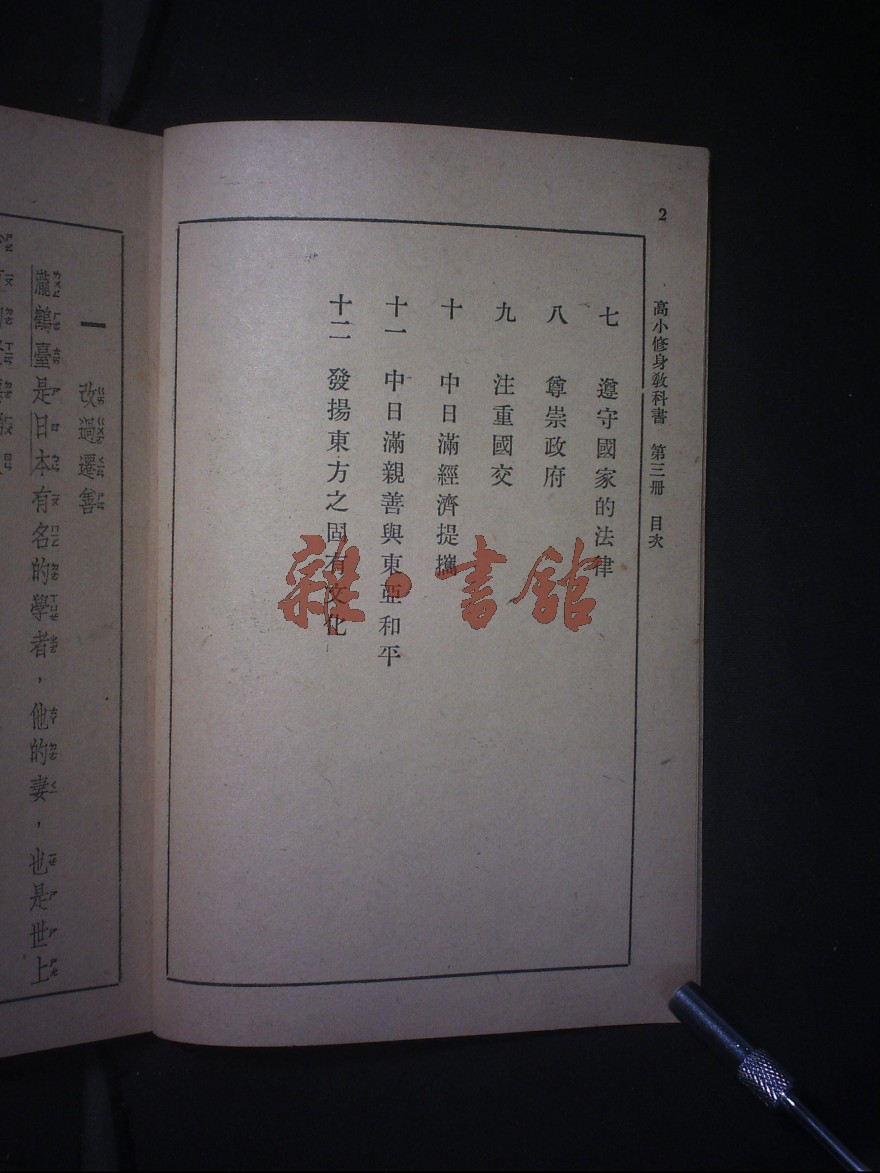 2
高小修身教科書　第三册　目次
七　遵守國家的法律
八　尊崇政府
九　注重國交
十　中日滿經濟提攜
十一　中日滿親善與東亞和平
十二　發揚東方之固有文化
雜·書館
一　改過遷善
瀧鶴臺是日本有名的學者，他的妻，也是世上